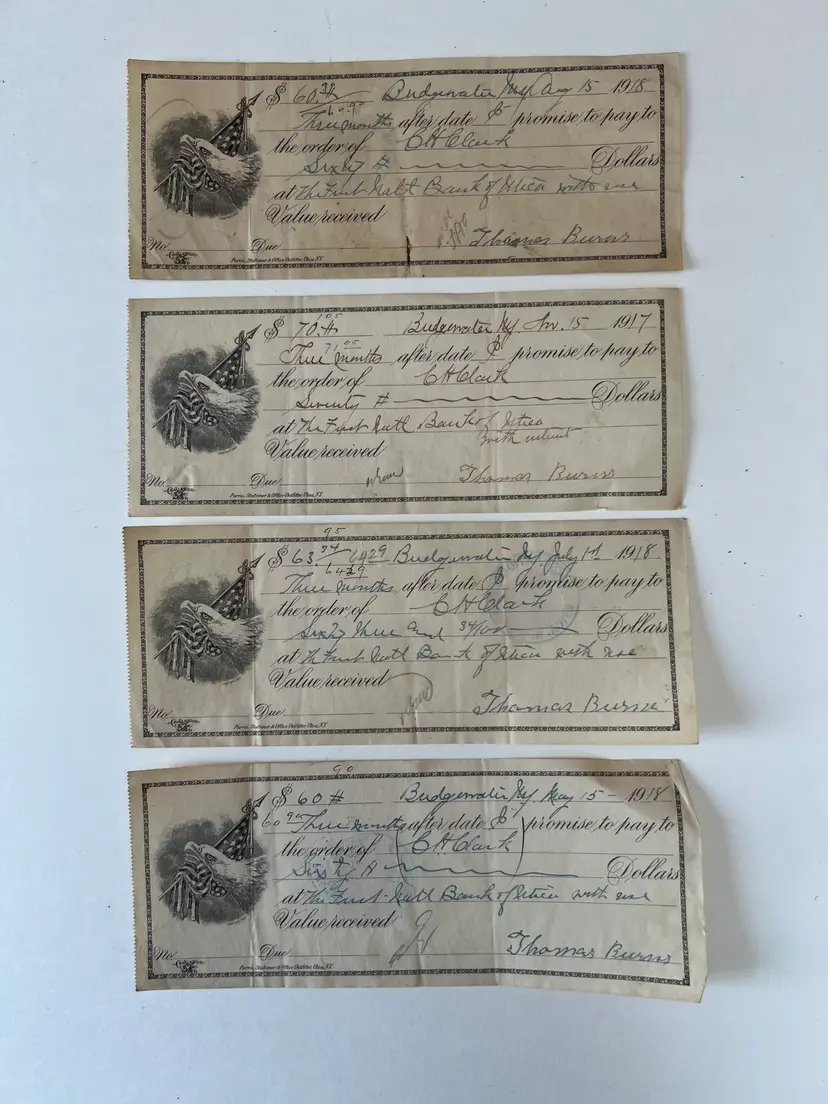 $ 60. Bridgewater Ny Aug 15 1918
60.90
Three months after date I promise to pay to
the order of C H Clark
Sixty # Dollars
at The First Natl Bank of Utica with use
Value received
Thomas Burns
No. Due
Purvis, Stationer & Office Outfitter, Utica, N.Y.
1 05
$ 70.# Bridgewater Ny Nov. 15 1917
71 05
Three months after date I promise to pay to
the order of C H Clark
Seventy # Dollars
at The First Natl Bank of Utica
with interest
Value received
Thomas Burns
No. Due
Purvis, Stationer & Office Outfitter, Utica, N.Y.
95
$ 63.34 6429 Bridgewater Ny July 1st 1918
6429
Three months after date I promise to pay to
the order of C H Clark
Sixty three and 34/100 Dollars
at The First Natl Bank of Utica with use
Value received
Thomas Burns
No. Due
Purvis, Stationer & Office Outfitter, Utica, N.Y.
90
$ 60 # Bridgewater Ny May 15 - 1918
60 90 Three months after date I promise to pay to
the order of C H Clark
Sixty # Dollars
at The First Natl Bank of Utica with use
Value received
Thomas Burns
No. Due
Purvis, Stationer & Office Outfitter, Utica, N.Y.